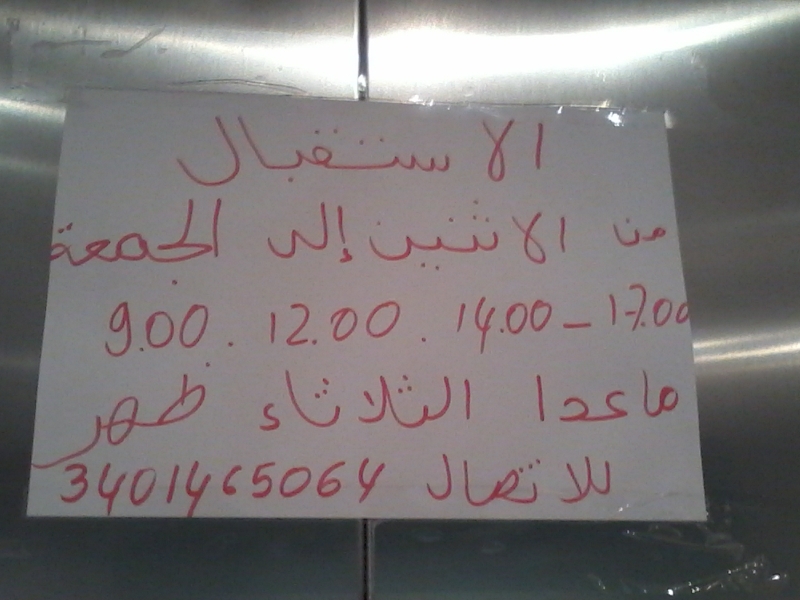 الاستقبال
من الاثنين إلى الجمعة
9.00 . 12.00 . 14.00 - 17.00
ماعدا الثلاثاء ظهر
للاتصال 3401465064